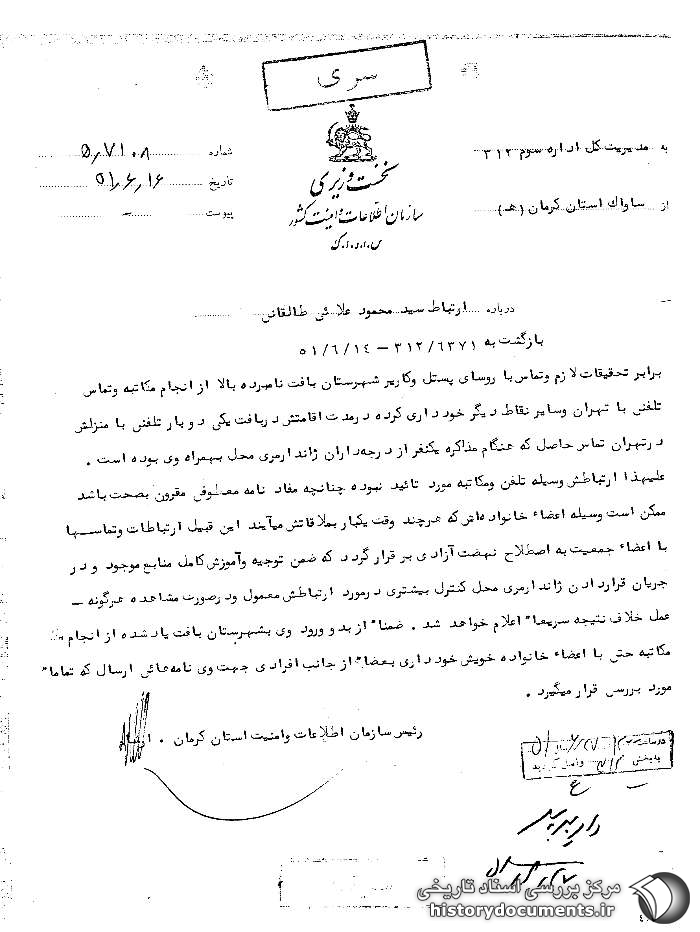 سری
به مدیریت کل اداره سوم ۳۱۲
از ساواک استان کرمان (ه‍)
نخست وزیری
سازمان اطلاعات و امنیت کشور
س.ا.و.ا.ک
شماره ۵٫۷۱۰۸
تاریخ ۵۱٫۶٫۱۶
پیوست –
درباره ارتباط سید محمود علائی طالقانی
بازگشت به ۳۱۲/۶۳۷۱ – ۵۱/۶/۱۴
برابر تحقیقات لازم وتماس با روسای پستل وکاریر شهرستان بافت نامبرده بالا از انجام مکاتبه وتماس
تلفنی با تهران وسایر نقاط دیگر خود داری کرده درمدت اقامتش دربافت یکی دو بار تلفنی با منزلش
درتهران تماس حاصل که هنگام مذاکره یکنفر از درجه‌داران ژاندارمری محل بهمراه وی بوده است .
علیهذا ارتباطش وسیله تلفن ومکاتبه مورد تائید نبوده چنانچه مفاد نامه معطوفی مقرون بصحت باشد
ممکن است وسیله اعضاء خانواده‌اش که هرچند وقت یکبار بملاقاتش میآیند این قبیل ارتباطات وتماسها
با اعضاء جمعیت به اصطلاح نهضت آزادی بر قرار گردد که ضمن توجیه وآموزش کامل منابع موجود و در
جریان قراردادن ژاندارمری محل کنترل بیشتری درمورد ارتباطش معمول ودرصورت مشاهده هرگونه –
عمل خلاف نتیجه سریعا" اعلام خواهد شد . ضمنا" از بدو ورود وی بشهرستان بافت یادشده از انجام
مکاتبه حتی با اعضاء خانواده خویش خودداری بعضا" از جانب افرادی جهت وی نامه‌هائی ارسال که تماما"
مورد بررسی قرار میگیرد .
رئیس سازمان اطلاعات وامنیت استان کرمان .
مرکز بررسی اسناد تاریخی
historydocuments.ir